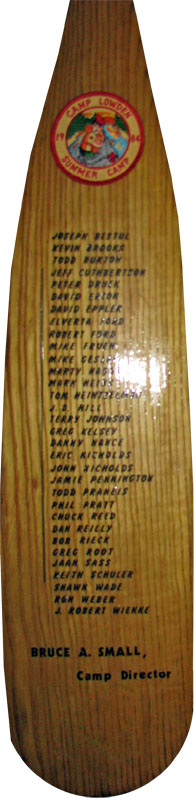 CAMP LOWDEN
19 86
SUMMER CAMP
JOSEPH BESTUL
KEVIN BROOKS
TODD BURTON
JEFF CUTHBERTSON
PETER DRUCK
DAVID
DAVID EPPLER
ELVERTA FORD
ROBERT FORD
FRUEH
MIKE
MARTY
MARK
TOM
J. D. HILL
TERRY JOHNSON
GREG KELSEY
DANNY NANCE
ERIC NICHOLDS
JOHN NICHOLDS
JAMIE PENNINGTON
TODD PRANCIS
PHIL PRATT
CHUCK REED
DAN REILLY
BOB RIECK
GREG ROOT
JAAN SASS
KEITH SCHULER
SHAWN WADE
RON WEBER
J. ROBERT WIENKE
BRUCE A. SMALL,
Camp Director